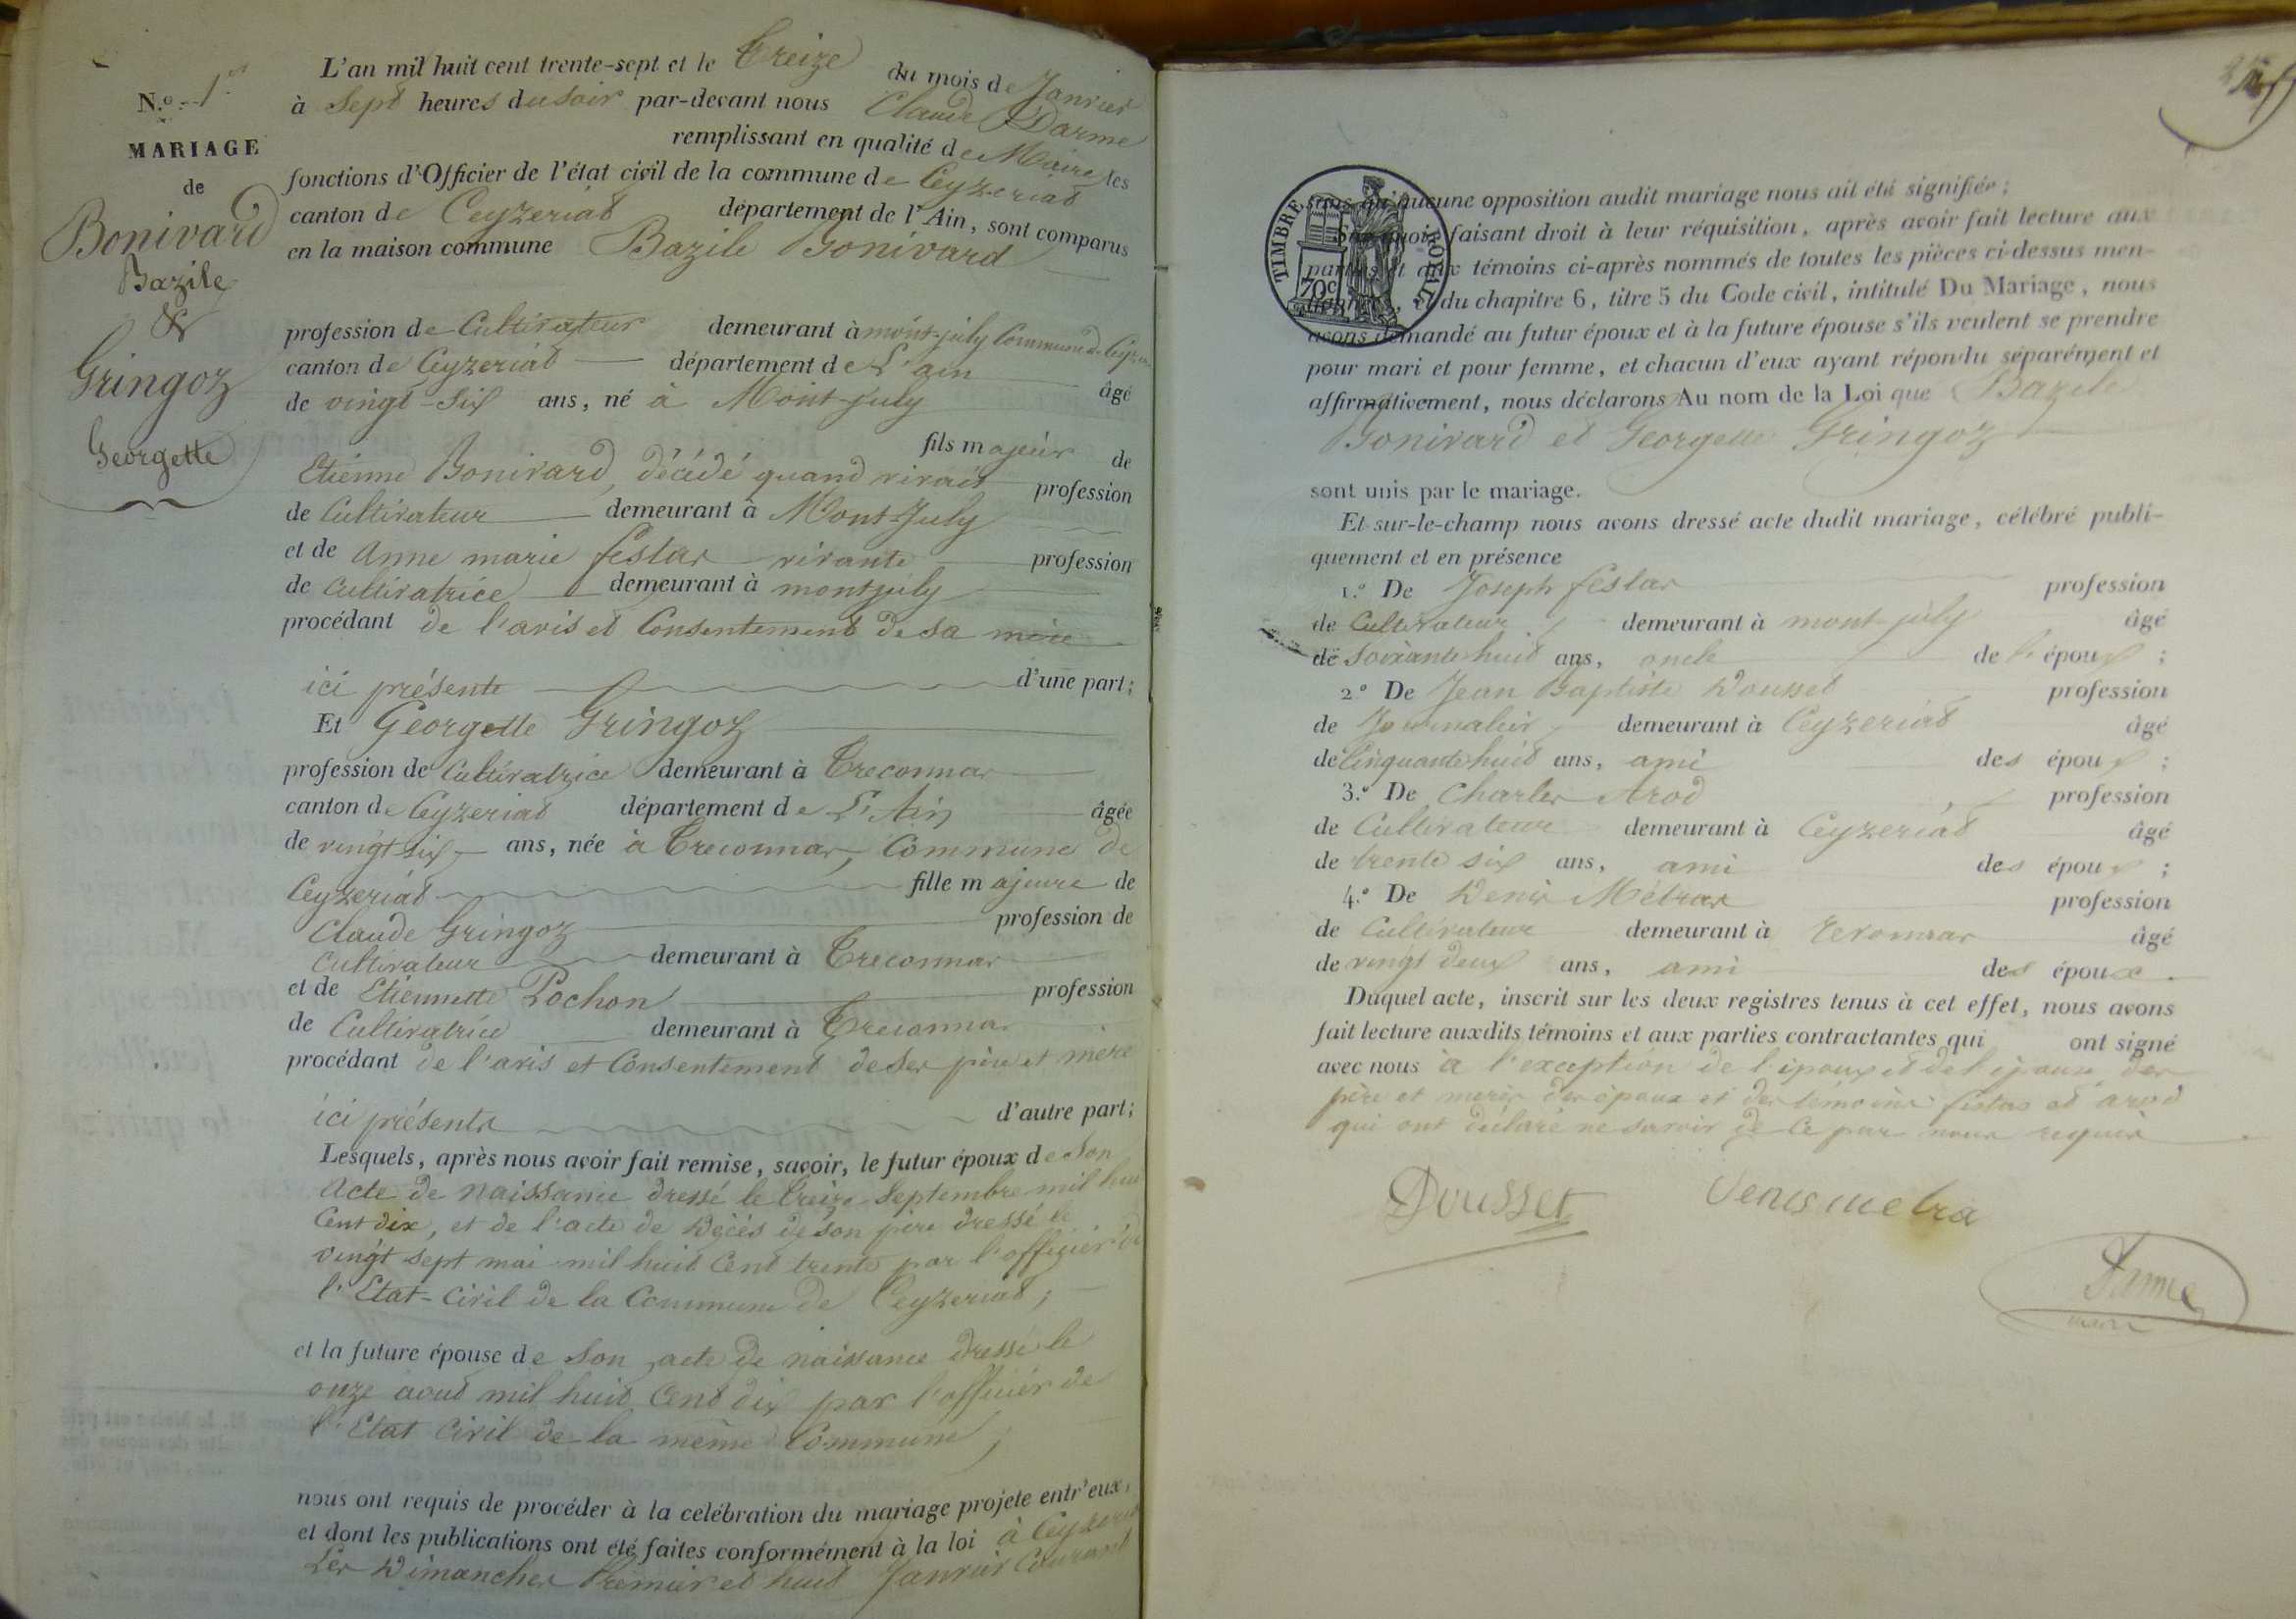 N.o 1er
MARIAGE
de
Bonivard
Bazile
&
Gringoz
Georgette
L'an mil huit cent trente-sept et le treize du mois de Janvier
à Sept heures du soir par-devant nous Claude Darme
remplissant en qualité de Maire les
fonctions d'Officier de l'état civil de la commune de Ceyzeriat
canton de Ceyzeriat département de l'Ain, sont comparus
en la maison commune Bazile Bonivard
profession de Cultivateur demeurant à mont-july Commune de
canton de Ceyzeriat département de L'ain âgé
de vingt-six ans, né à Mont-july
fils majeur de
Etienne Bonivard, décédé quand vivait profession
de Cultivateur demeurant à Mont-July
et de Anne marie festas vivante profession
de Cultivatrice demeurant à montjuly
procédant de l'avis et Consentement de sa mère
ici présente d'une part;
Et Georgette Gringoz
profession de Cultivatrice demeurant à Treconnas
canton de Ceyzeriat département de L'Ain âgée
de vingt six ans, née à Treconnas, Commune de
Ceyzeriat fille majeure de
Claude Gringoz profession de
Cultivateur demeurant à Treconnas
et de Etiennette Pochon profession
de Cultivatrice demeurant à Treconnas
procédant de l'avis et Consentement de ses père et mère
ici présents d'autre part;
Lesquels, après nous avoir fait remise, savoir, le futur époux de Son
Acte de naissance dressé le treize Septembre mil huit
Cent dix, et de l'acte de Décès de son père dressé le
vingt sept mai mil huit Cent trente par l'officier de
l'Etat-Civil de la Commune de Ceyzeriat;
et la future épouse de Son acte de naissance dressé le
onze aout mil huit Cent dix par l'officier de
l'Etat Civil de la même Commune;
nous ont requis de procéder à la célébration du mariage projeté entr'eux,
et dont les publications ont été faites conformément à la loi à Ceyzeriat
Les Dimanches Premier et huit Janvier Courant
TIMBRE ROYAL
70c
sans qu'aucune opposition audit mariage nous ait été signifiée;
Sur quoi, faisant droit à leur réquisition, après avoir fait lecture aux
parties et aux témoins ci-après nommés de toutes les pièces ci-dessus men-
tionnées, et du chapitre 6, titre 5 du Code civil, intitulé Du Mariage, nous
avons demandé au futur époux et à la future épouse s'ils veulent se prendre
pour mari et pour femme, et chacun d'eux ayant répondu séparément et
affirmativement, nous déclarons Au nom de la Loi que Bazile
Bonivard et Georgette Gringoz
sont unis par le mariage.
Et sur-le-champ nous avons dressé acte dudit mariage, célébré publi-
quement et en présence
1.o De Joseph festas profession
de Cultivateur demeurant à mont-july âgé
de soixante huit ans, oncle de l'époux;
2o De Jean Baptiste Dousset profession
de Journalier demeurant à Ceyzeriat âgé
de Cinquante huit ans, ami des époux;
3.o De Charles Arod profession
de Cultivateur demeurant à Ceyzeriat âgé
de trente six ans, ami des époux;
4.o De Denis Métras profession
de Cultivateur demeurant à âgé
de vingt deux ans, ami des époux.
Duquel acte, inscrit sur les deux registres tenus à cet effet, nous avons
fait lecture auxdits témoins et aux parties contractantes qui ont signé
avec nous à l'exception de l'époux et de l'épouse des
père et mères des époux et des témoins festas et arod
qui ont déclaré ne savoir de ce par nous requis
Dousset
Denis metra
Darme
maire